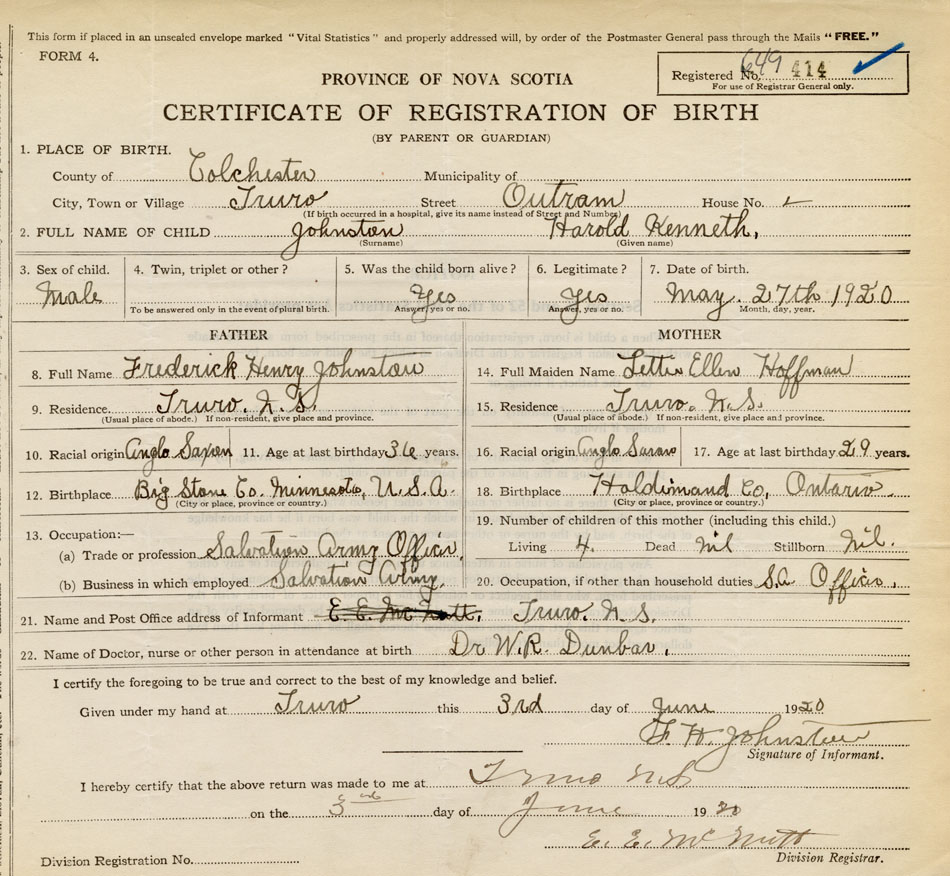 This form if placed in an unsealed envelope marked "Vital Statistics" and properly addressed will, by order of the Postmaster General pass through the Mails "FREE."
FORM 4.
649 414
Registered No.
For use of Registrar General only.
PROVINCE OF NOVA SCOTIA
CERTIFICATE OF REGISTRATION OF BIRTH
(BY PARENT OR GUARDIAN)
1. PLACE OF BIRTH.
County of Colchester Municipality of
City, Town or Village Truro Street Outram House No. -
(If birth occurred in a hospital, give its name instead of Street and Number)
2. FULL NAME OF CHILD Johnston Harold Kenneth,
(Surname) (Given name)
3. Sex of child. 4. Twin, triplet or other? 5. Was the child born alive? 6. Legitimate? 7. Date of birth.
Male Yes Yes May. 27th 1920
To be answered only in the event of plural birth. Answer, yes or no. Answer, yes or no. Month, day, year.
FATHER MOTHER
8. Full Name Frederick Henry Johnston 14. Full Maiden Name Ellen Hoffman
9. Residence. Truro. N.S. 15. Residence Truro. N.S.
(Usual place of abode.) If non-resident, give place and province. (Usual place of abode.) If non-resident, give place and province.
10. Racial origin Anglo Saxon 11. Age at last birthday 36 years. 16. Racial origin Anglo Saxon 17. Age at last birthday 29 years.
12. Birthplace Big Stone Co. Minnesota, U.S.A. 18. Birthplace Haldimand Co, Ontario.
(City or place, province or country.) (City or place, province or country.)
13. Occupation:— 19. Number of children of this mother (including this child.)
(a) Trade or profession Salvation Army Officer. Living 4. Dead Nil Stillborn Nil.
(b) Business in which employed Salvation Army. 20. Occupation, if other than household duties S.A Officer.
21. Name and Post Office address of Informant E. E. McNutt, Truro. N.S.
22. Name of Doctor, nurse or other person in attendance at birth Dr W.R. Dunbar.
I certify the foregoing to be true and correct to the best of my knowledge and belief.
Given under my hand at Truro this 3rd day of June 1920
F. H. Johnston
Signature of Informant.
I hereby certify that the above return was made to me at Truro N.S
on the 3rd day of June 1920
E. E. McNutt
Division Registration No. Division Registrar.